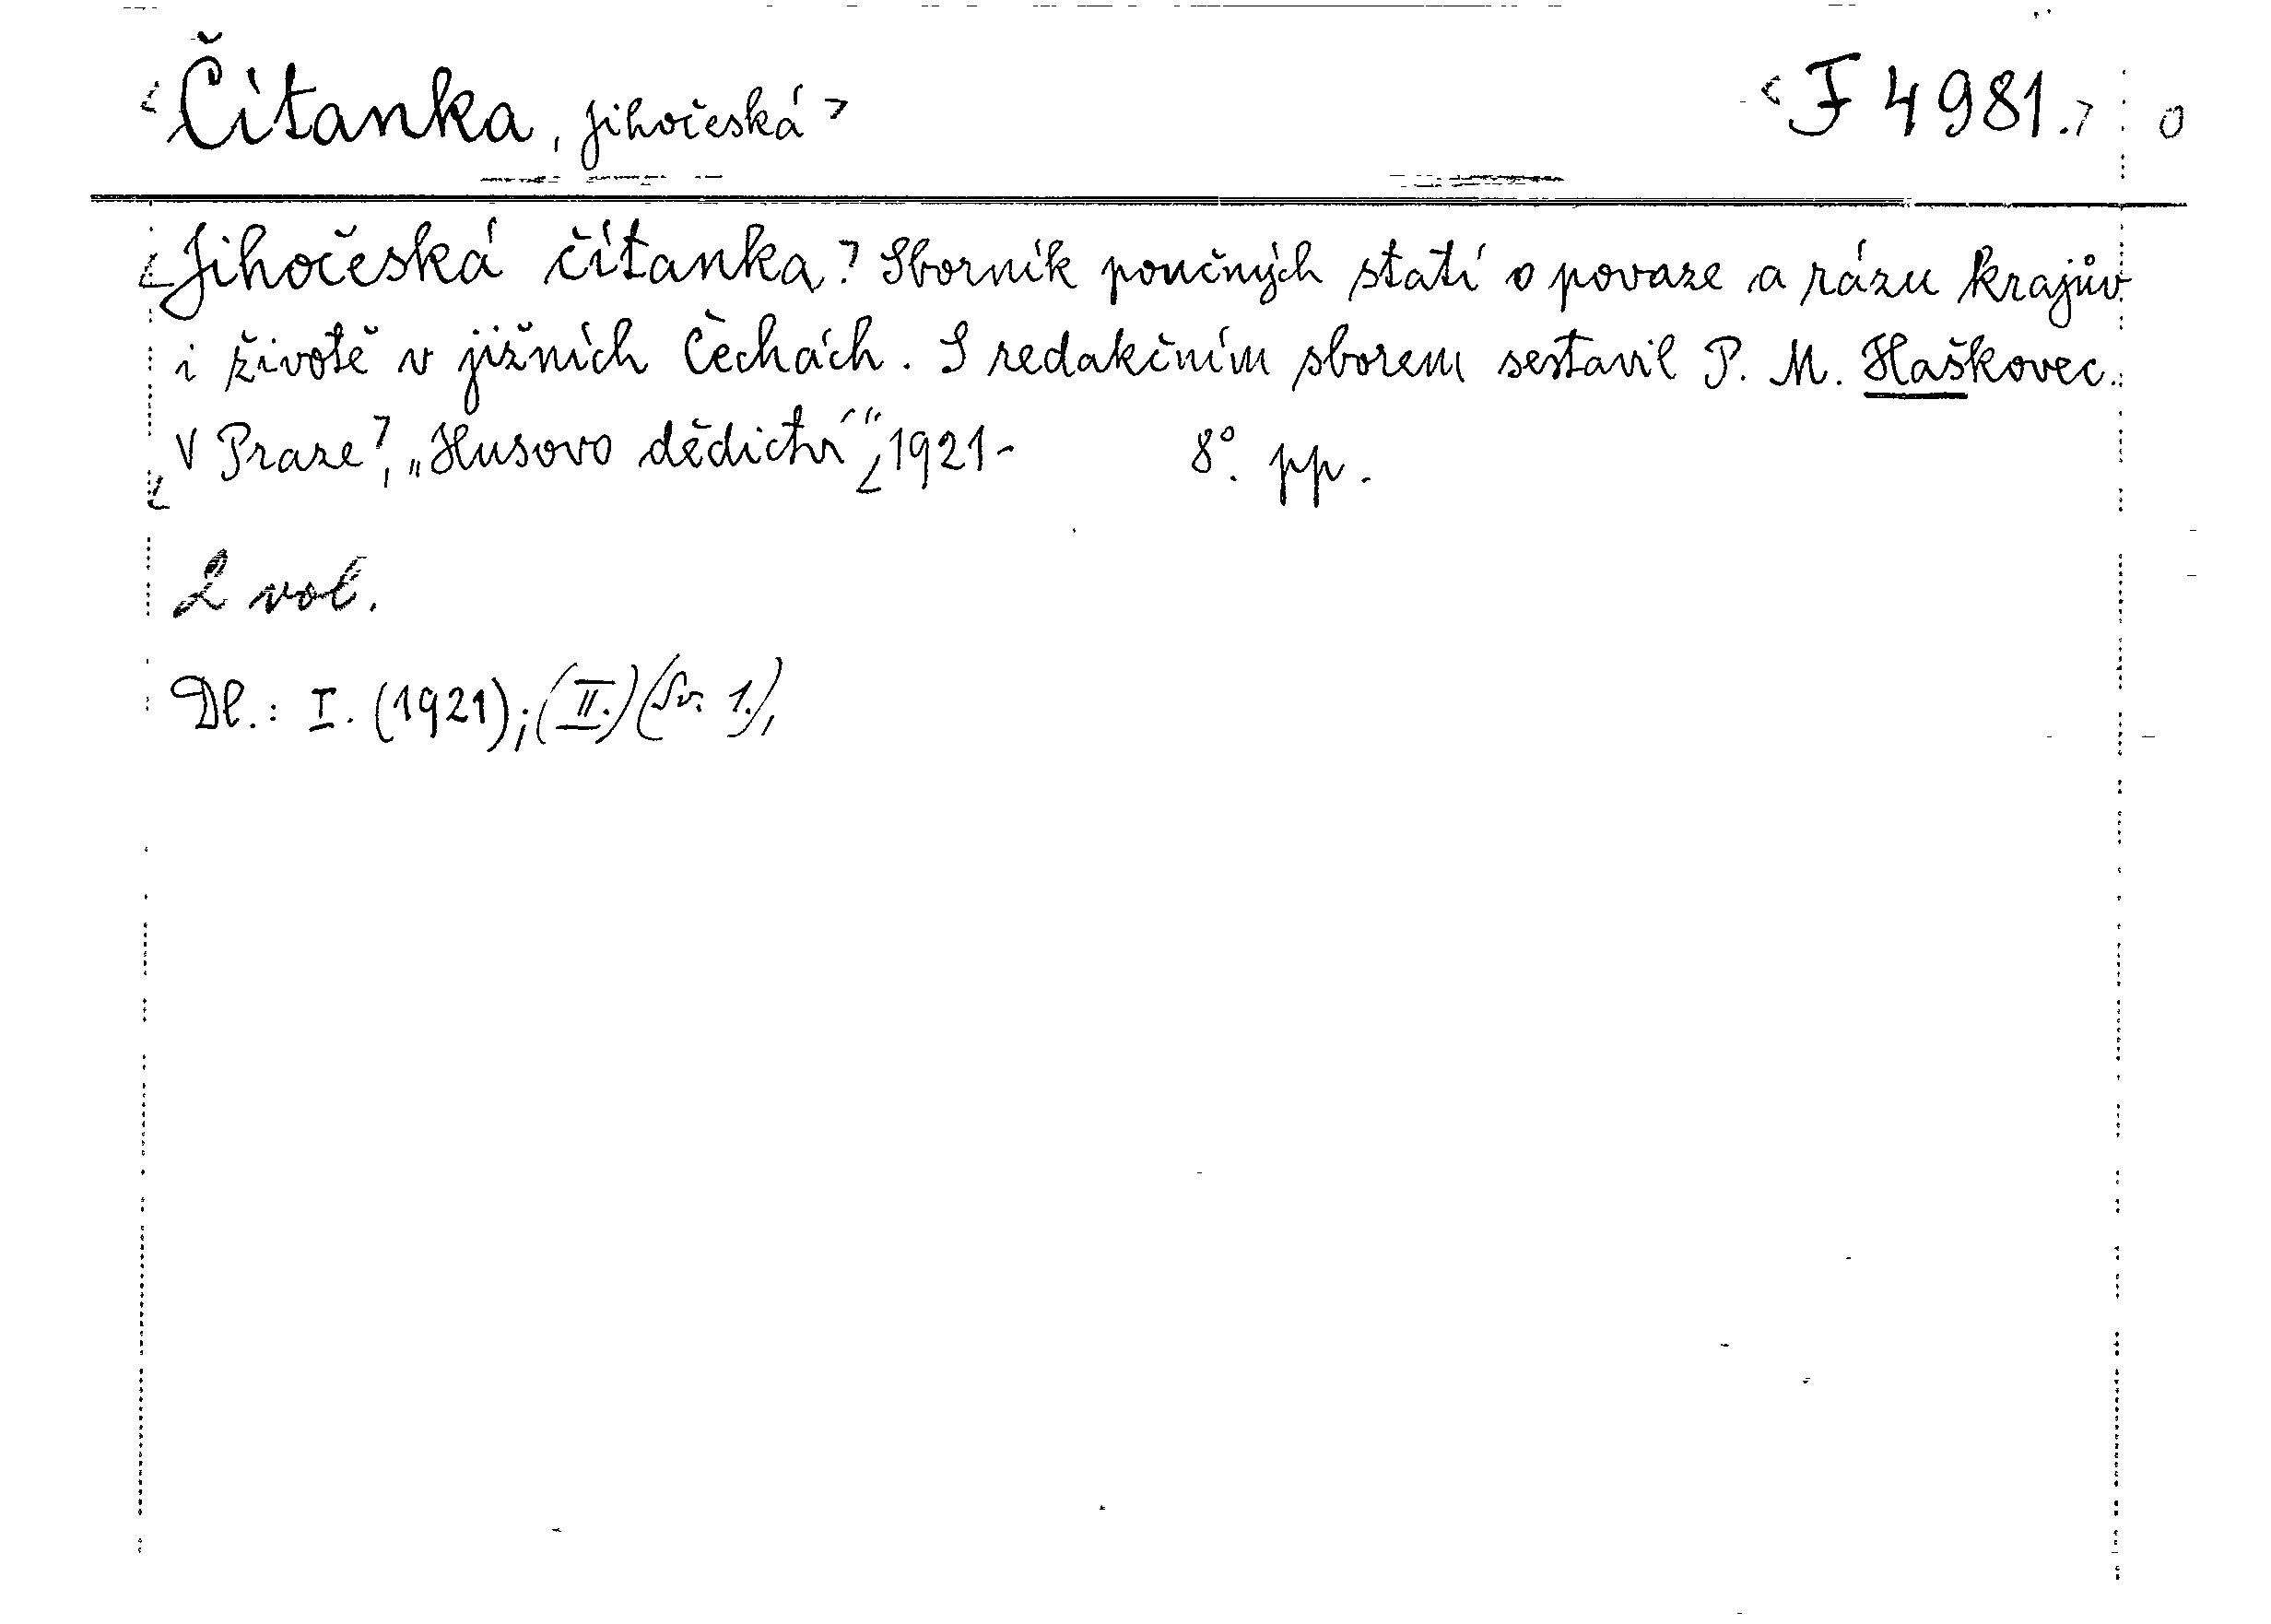 <Čítanka, jihočeská> <F 4981.> 0
<Jihočeská čítanka> Sborník poučných statí o povaze a rázu krajův
i životě v jižních Čechách. S redakčním sborem sestavil P. M. Haškovec.
<V Praze>, „Husovo dědictví“, <1921- 8°. pp.
2 vol.
Dl.: I. (1921); (II.) (Sv. 1.),